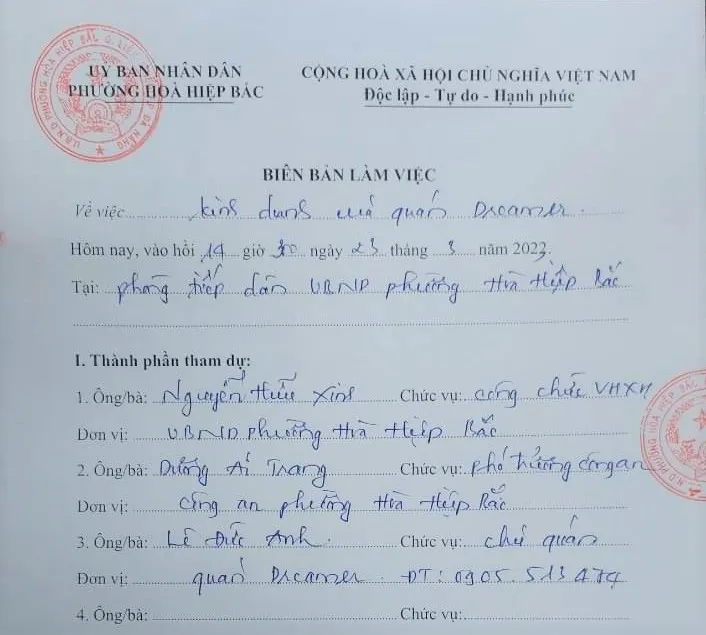 UỶ BAN NHÂN DÂN
PHƯỜNG HOÀ HIỆP BẮC
CỘNG HOÀ XÃ HỘI CHỦ NGHĨA VIỆT NAM
Độc lập - Tự do - Hạnh phúc
BIÊN BẢN LÀM VIỆC
Về việc dung quán Dreamer.
Hôm nay, vào hồi 14 giờ 30 ngày 23 tháng 3 năm 2023.
Tại: phòng tiếp dân UBND phường Hòa Hiệp Bắc
I. Thành phần tham dự:
1. Ông/bà: Nguyễn Hữu Xinh Chức vụ: công chức VHXH
Đơn vị: UBND phường Hoà Hiệp Bắc
2. Ông/bà: Dương Ái Trang Chức vụ: phó trưởng công an
Đơn vị: công an phường Hoà Hiệp Bắc
3. Ông/bà: Lê Đức Anh. Chức vụ: chủ quán
Đơn vị: quán Dreamer. ĐT: 0905.513 474
4. Ông/bà: Chức vụ: